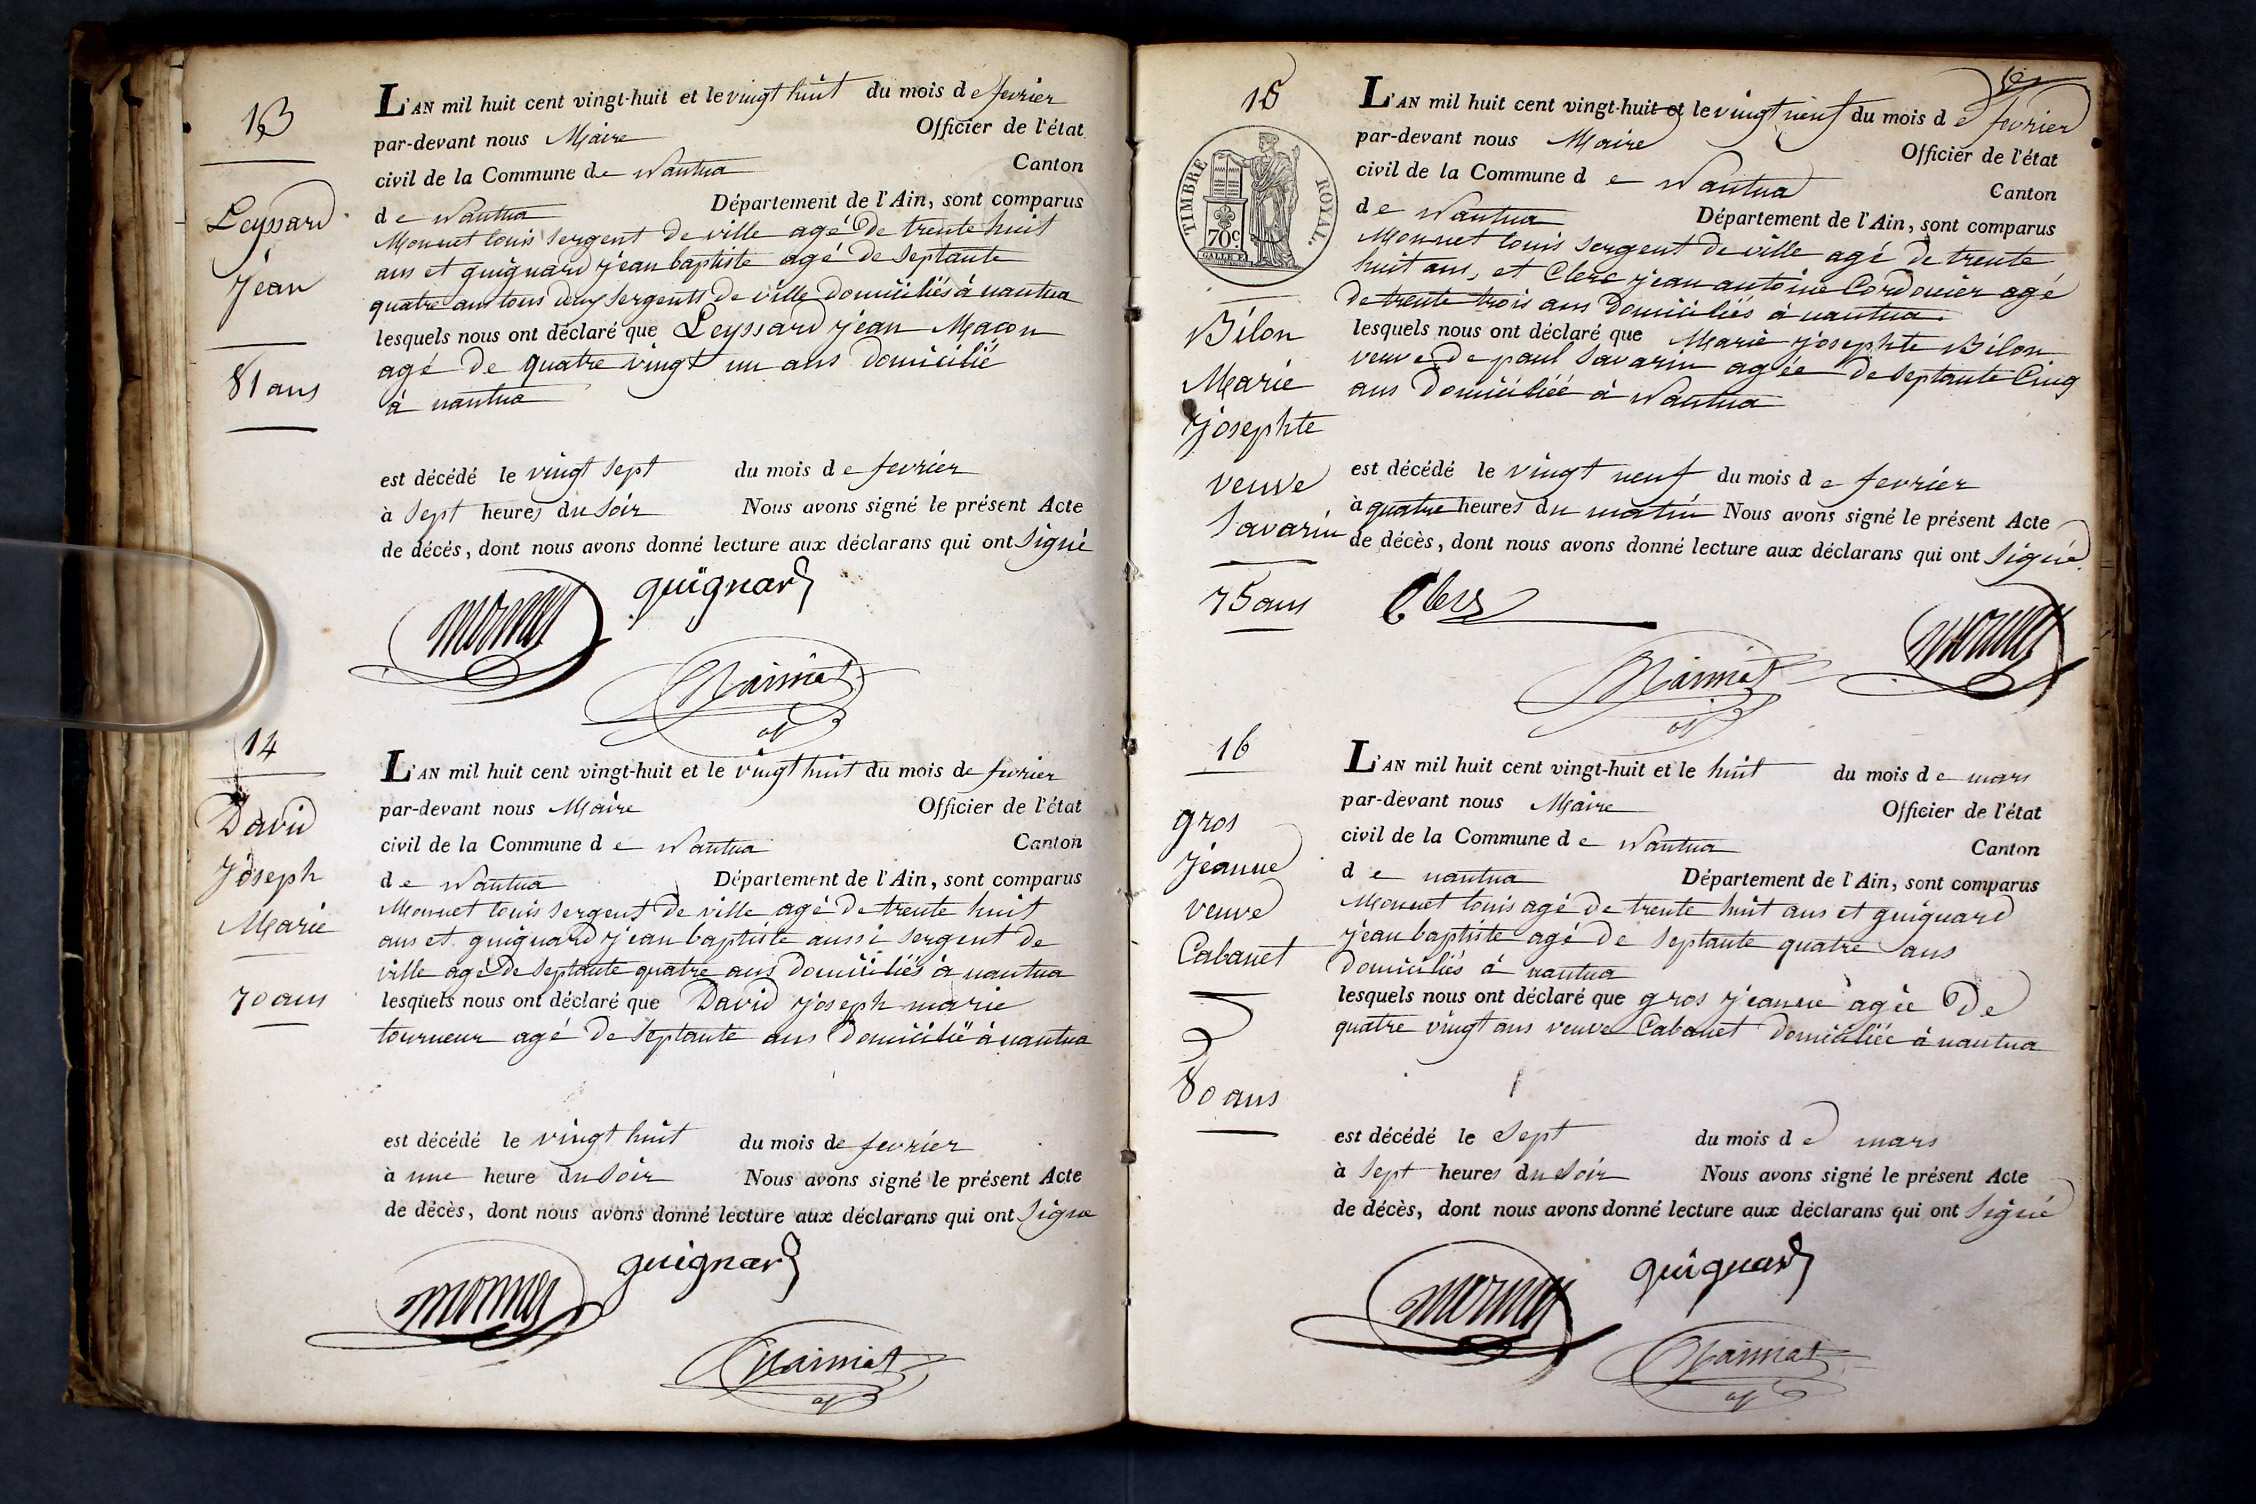 13
Leyssard
Jean
81 ans
L'AN mil huit cent vingt-huit et le vingt huit du mois de fevrier
par-devant nous Maire Officier de l'état
civil de la Commune de Nantua Canton
de Nantua Département de l'Ain, sont comparus
Monnet louis sergent de ville agé de trente huit
ans et guignard jean baptiste agé de septante
quatre ans tous deux sergents de ville domiciliés à nantua
lesquels nous ont déclaré que Leyssard jean Maçon
agé de quatre vingt un ans domicilié
à nantua
est décédé le vingt sept du mois de fevrier
à sept heures du soir Nous avons signé le présent Acte
de décés, dont nous avons donné lecture aux déclarans qui ont signé
monnet guignard
14
David
Joseph
Marie
70 ans
L'AN mil huit cent vingt-huit et le vingt huit du mois de fevrier
par-devant nous Maire Officier de l'état
civil de la Commune de Nantua Canton
de Nantua Département de l'Ain, sont comparus
Monnet louis sergent de ville agé de trente huit
ans et guignard jean baptiste aussi sergent de
ville agé de septante quatre ans domiciliés à nantua
lesquels nous ont déclaré que David joseph marie
tourneur agé de septante ans domicilié à nantua
est décédé le vingt huit du mois de fevrier
à une heure du soir Nous avons signé le présent Acte
de décès, dont nous avons donné lecture aux déclarans qui ont signé
monnet guignard
15
TIMBRE ROYAL.
70c
Bélon
Marie
josephte
veuve
Savarin
75 ans
L'AN mil huit cent vingt-huit et le vingt neuf du mois de fevrier
par-devant nous Maire Officier de l'état
civil de la Commune de Nantua Canton
de Nantua Département de l'Ain, sont comparus
Monnet louis sergent de ville agé de trente
huit ans, et Clerc jean antoine Cordonier agé
de trente trois ans domiciliés à nantua.
lesquels nous ont déclaré que Marie josephte Bélon
veuve de paul Savarin agée de septante Cinq
ans domiciliée à Nantua
est décédé le vingt neuf du mois de fevrier
à quatre heures du matin Nous avons signé le présent Acte
de décès, dont nous avons donné lecture aux déclarans qui ont signé
Clerc
monnet
16
gros
jeanne
veuve
Cabanet
80 ans
L'AN mil huit cent vingt-huit et le huit du mois de mars
par-devant nous Maire Officier de l'état
civil de la Commune de Nantua Canton
de nantua Département de l'Ain, sont comparus
Monnet louis agé de trente huit ans et guignard
jean baptiste agé de septante quatre ans
domiciliés à nantua
lesquels nous ont déclaré que gros jeanne agée de
quatre vingt ans veuve Cabanet domiciliée à nantua
est décédé le sept du mois de mars
à sept heures du soir Nous avons signé le présent Acte
de décès, dont nous avons donné lecture aux déclarans qui ont signé
monnet guignard